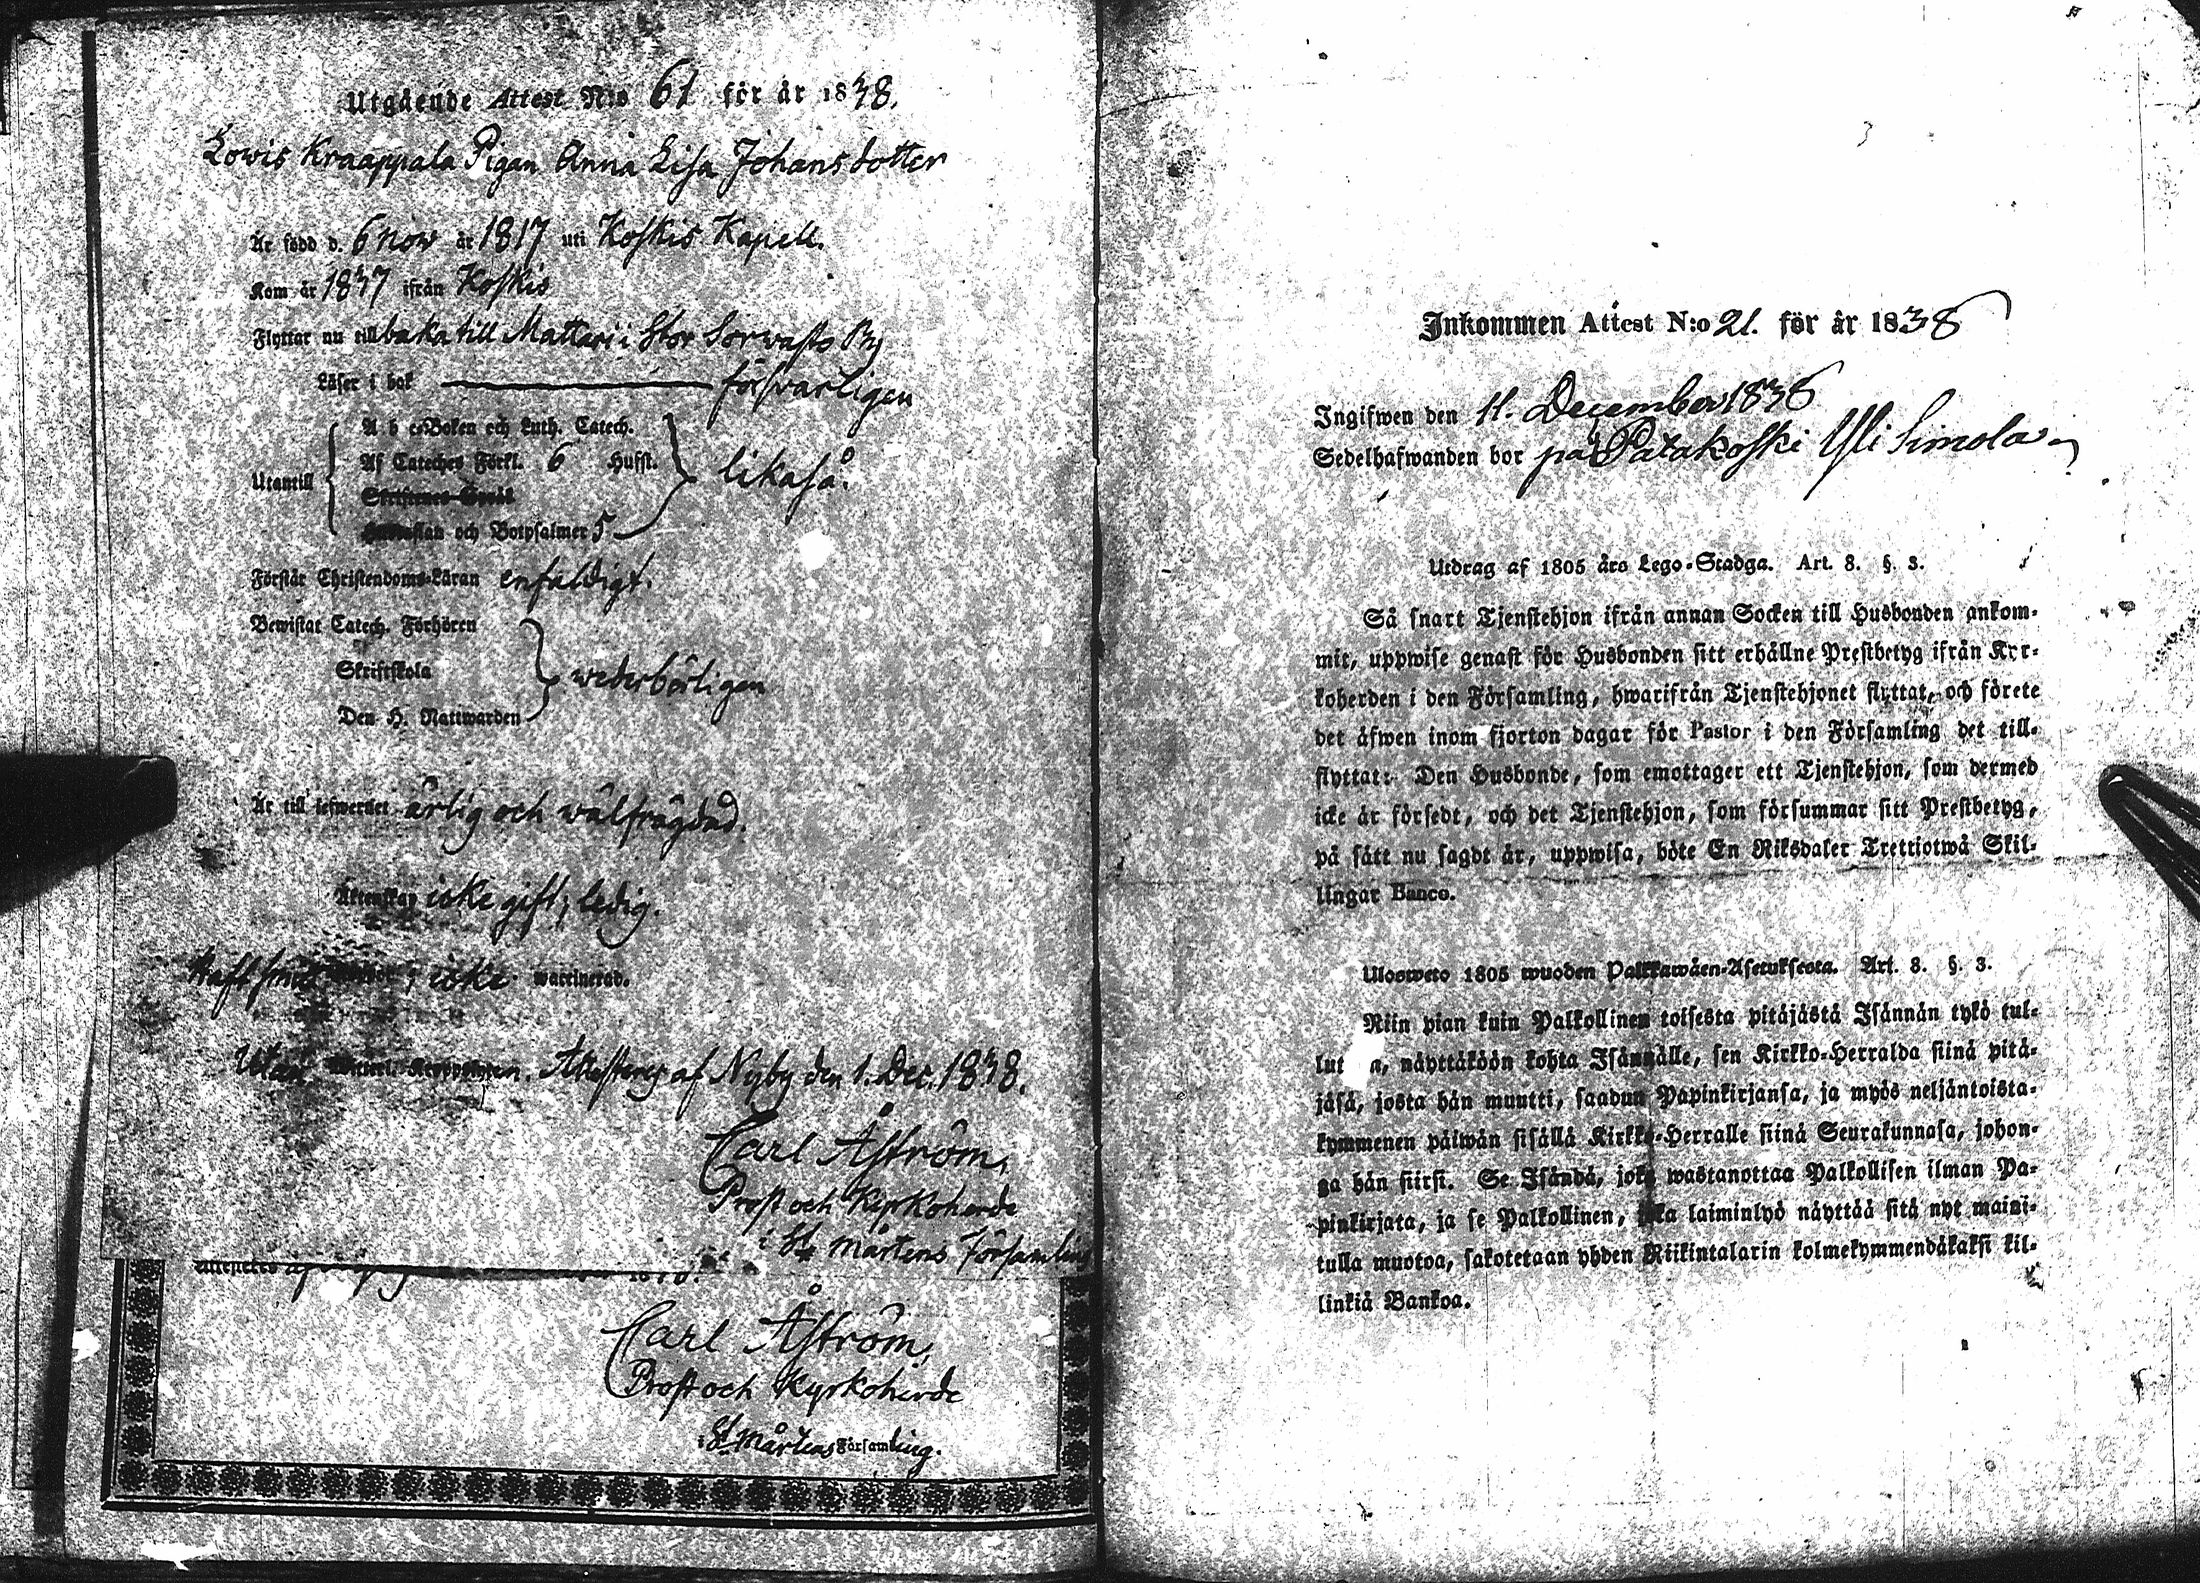 Utgående Attest N:o 61 för år 1838.
Lowis Kraappala Pigan Anna Lisa Johansdotter
Är född d. 6 nov år 1817 uti Koskis Kapell.
Kom år 1837 ifrån Koskis
Flyttar nu tillbaka till Mattari i Stor Sorvasto By
Läser i bok försvarligen
A b c-Boken och Luth. Catech.
Af Cateches Förkl. 6 Hufst.
Utantill likaså.
Skriftenes-Språk
och Botpsalmer 5
Förstår Christendoms-Läran enfaldigt.
Bewistat Catech. Förhören
Skriftskola wederbörligen
Den H. Nattwarden
Är till lefwernet ärlig och wälfrägdad.
Äktenskap icke gift; ledig.
Haft ; icke waccinerad.
Utan Attesteras af Nyby den 1. Dec. 1838.
Carl Åström,
Prost och Kyrkoherde
i St Mårtens Församling
Carl Åström,
Prost och Kyrkoherde
i St Mårtens Församling.
Inkommen Attest N:o 21. för år 1838
Ingifwen den 11. December 1838
Sedelhafwanden bor på Patakoski Yli Simola
Utdrag af 1805 års Lego-Stadga. Art. 8. §. 3.
Så snart Tjenstehjon ifrån annan Socken till Husbonden ankom-
mit, uppwise genast för Husbonden sitt erhållne Prestbetyg ifrån Kyr-
koherden i den Församling, hwarifrån Tjenstehjonet flyttat, och förete
det äfwen inom fjorton dagar för Pastor i den Församling det till-
flyttat: Den Husbonde, som emottager ett Tjenstehjon, som dermed
icke är försedt, och det Tjenstehjon, som försummar sitt Prestbetyg,
på sätt nu sagdt är, uppwisa, böte En Riksdaler Trettiotwå Skil-
lingar Banco.
Ulosweto 1805 wuoden Palkkawäen-Asetuksesta. Art. 8. §. 3.
Niin pian kuin Palkollinen toisesta pitäjästä Isännän tykö tul-
lut a, näyttäköön kohta Isännälle, sen Kirkko-Herralda siinä pitä-
jäsä, josta hän muutti, saadun Papinkirjansa, ja myös neljäntoista-
kymmenen päiwän sisällä Kirkko-Herralle siinä Seurakunnasa, johon-
ga hän siirsi. Se Isändä, joka wastanottaa Palkollisen ilman Pa-
pinkirjata, ja se Palkollinen, joka laiminlyö näyttää sitä nyt maini-
tulla muotoa, sakotetaan yhden Riikintalarin kolmekymmendäkaksi kil-
linkiä Bankoa.